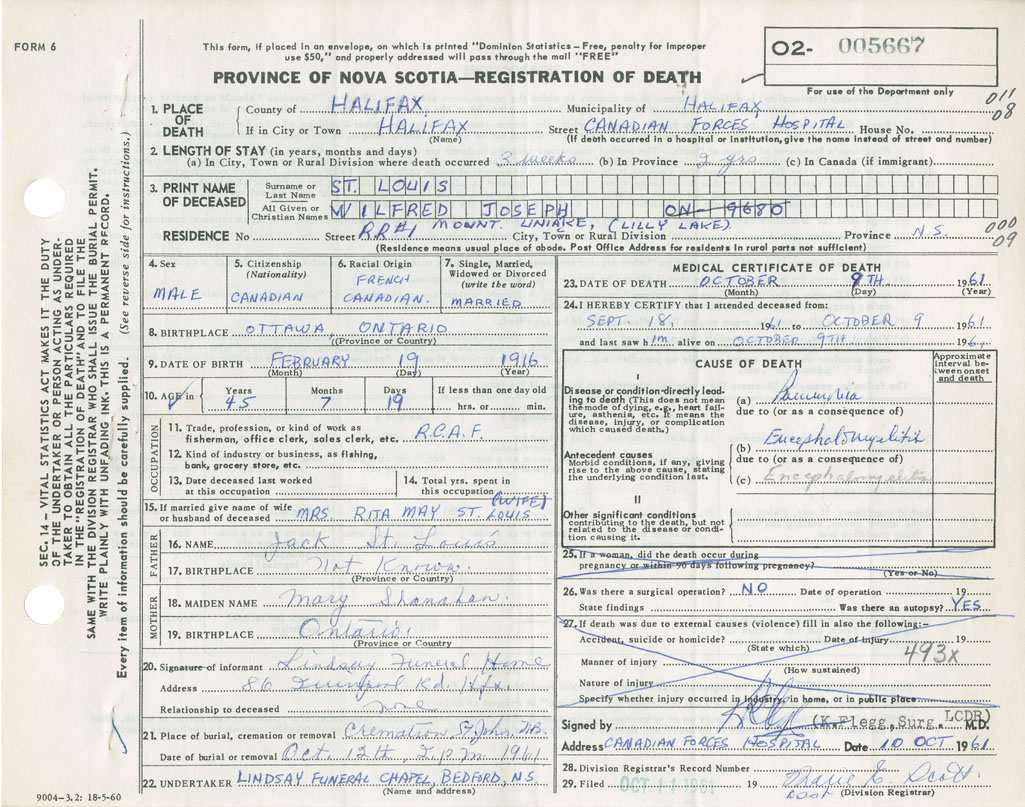 FORM 6
This form, if placed in an envelope, on which is printed "Dominion Statistics – Free, penalty for improper
use $50," and properly addressed will pass through the mail "FREE"
PROVINCE OF NOVA SCOTIA—REGISTRATION OF DEATH
O2- 005667
For use of the Department only
011
08
1. PLACE OF DEATH
County of HALIFAX Municipality of HALIFAX
If in City or Town HALIFAX Street CANADIAN FORCES HOSPITAL House No.
(Name) (If death occurred in a hospital or institution, give the name instead of street and number)
2. LENGTH OF STAY (in years, months and days)
(a) In City, Town or Rural Division where death occurred 3 weeks (b) In Province 2 yrs (c) In Canada (if immigrant)
3. PRINT NAME OF DECEASED
Surname or Last Name ST. LOUIS
All Given or Christian Names WILFRED JOSEPH ON-9680
RESIDENCE No Street RR#1 MOUNT. UNIAKE, (LILLY LAKE). City, Town or Rural Division Province N.S.
000
09
(Residence means usual place of abode. Post Office Address for residents in rural parts not sufficient)
4. Sex MALE
5. Citizenship (Nationality) CANADIAN
6. Racial Origin FRENCH CANADIAN.
7. Single, Married, Widowed or Divorced (write the word) MARRIED
8. BIRTHPLACE OTTAWA, ONTARIO
((Province or Country)
9. DATE OF BIRTH FEBRUARY 19 1916
(Month) (Day) (Year)
10. AGE in Years 45 Months 7 Days 19 If less than one day old
hrs. or min.
OCCUPATION
11. Trade, profession, or kind of work as
fisherman, office clerk, sales clerk, etc. R.C.A.F.
12. Kind of industry or business, as fishing,
bank, grocery store, etc.
13. Date deceased last worked
at this occupation
14. Total yrs. spent in
this occupation
15. If married give name of wife
or husband of deceased MRS. RITA MAY ST. LOUIS (WIFE)
FATHER
16. NAME Jack St. Louis
17. BIRTHPLACE Not Known.
(Province or Country)
MOTHER
18. MAIDEN NAME Mary Shanahan.
19. BIRTHPLACE Ontario.
(Province or Country)
20. Signature of informant Lindsay Funeral Home
Address 86 Quinpool Rd. Hfx.
Relationship to deceased none
21. Place of burial, cremation or removal Cremation St John, N.B.
Date of burial or removal Oct. 12th, 2 P.M. 1961
22. UNDERTAKER LINDSAY FUNERAL CHAPEL, BEDFORD, N.S.
(Name and address)
MEDICAL CERTIFICATE OF DEATH
23. DATE OF DEATH OCTOBER 9TH 1961
(Month) (Day) (Year)
24. I HEREBY CERTIFY that I attended deceased from:
SEPT. 18, 1961 to OCTOBER 9 1961
and last saw him alive on OCTOBER 9TH 1961
CAUSE OF DEATH
Approximate interval between onset and death
I
Disease or condition directly leading to death (This does not mean the mode of dying, e.g., heart failure, asthenia, etc. It means the disease, injury, or complication which caused death.)
(a) Pneumonia
due to (or as a consequence of)
Antecedent causes
Morbid conditions, if any, giving rise to the above cause, stating the underlying condition last.
(b) Encephalomyelitis
due to (or as a consequence of)
(c) Encephalomyelitis
II
Other significant conditions
contributing to the death, but not related to the disease or condition causing it.
25. If a woman, did the death occur during
pregnancy or within 90 days following pregnancy?
(Yes or No)
26. Was there a surgical operation? NO Date of operation 19
State findings Was there an autopsy? YES
27. If death was due to external causes (violence) fill in also the following:-
Accident, suicide or homicide? Date of injury 19
(State which)
493x
Manner of injury
(How sustained)
Nature of injury
Specify whether injury occurred in industry, in home, or in public place
Signed by (K. Flegg, Surg. LCDR) M.D.
Address CANADIAN FORCES HOSPITAL Date 10 OCT 1961
28. Division Registrar's Record Number
29. Filed OCT 11 1961 19 Marie E. Scott
(Division Registrar)
SEC. 14 – VITAL STATISTICS ACT MAKES IT THE DUTY
OF THE UNDERTAKER OR PERSON ACTING AS UNDER-
TAKER TO OBTAIN ALL THE PARTICULARS REQUIRED
IN THE "REGISTRATION OF DEATH" AND TO FILE THE
SAME WITH THE DIVISION REGISTRAR WHO SHALL ISSUE THE BURIAL PERMIT.
WRITE PLAINLY WITH UNFADING INK. THIS IS A PERMANENT RECORD.
Every item of information should be carefully supplied. (See reverse side for instructions.)
9004-3.2: 18-5-60